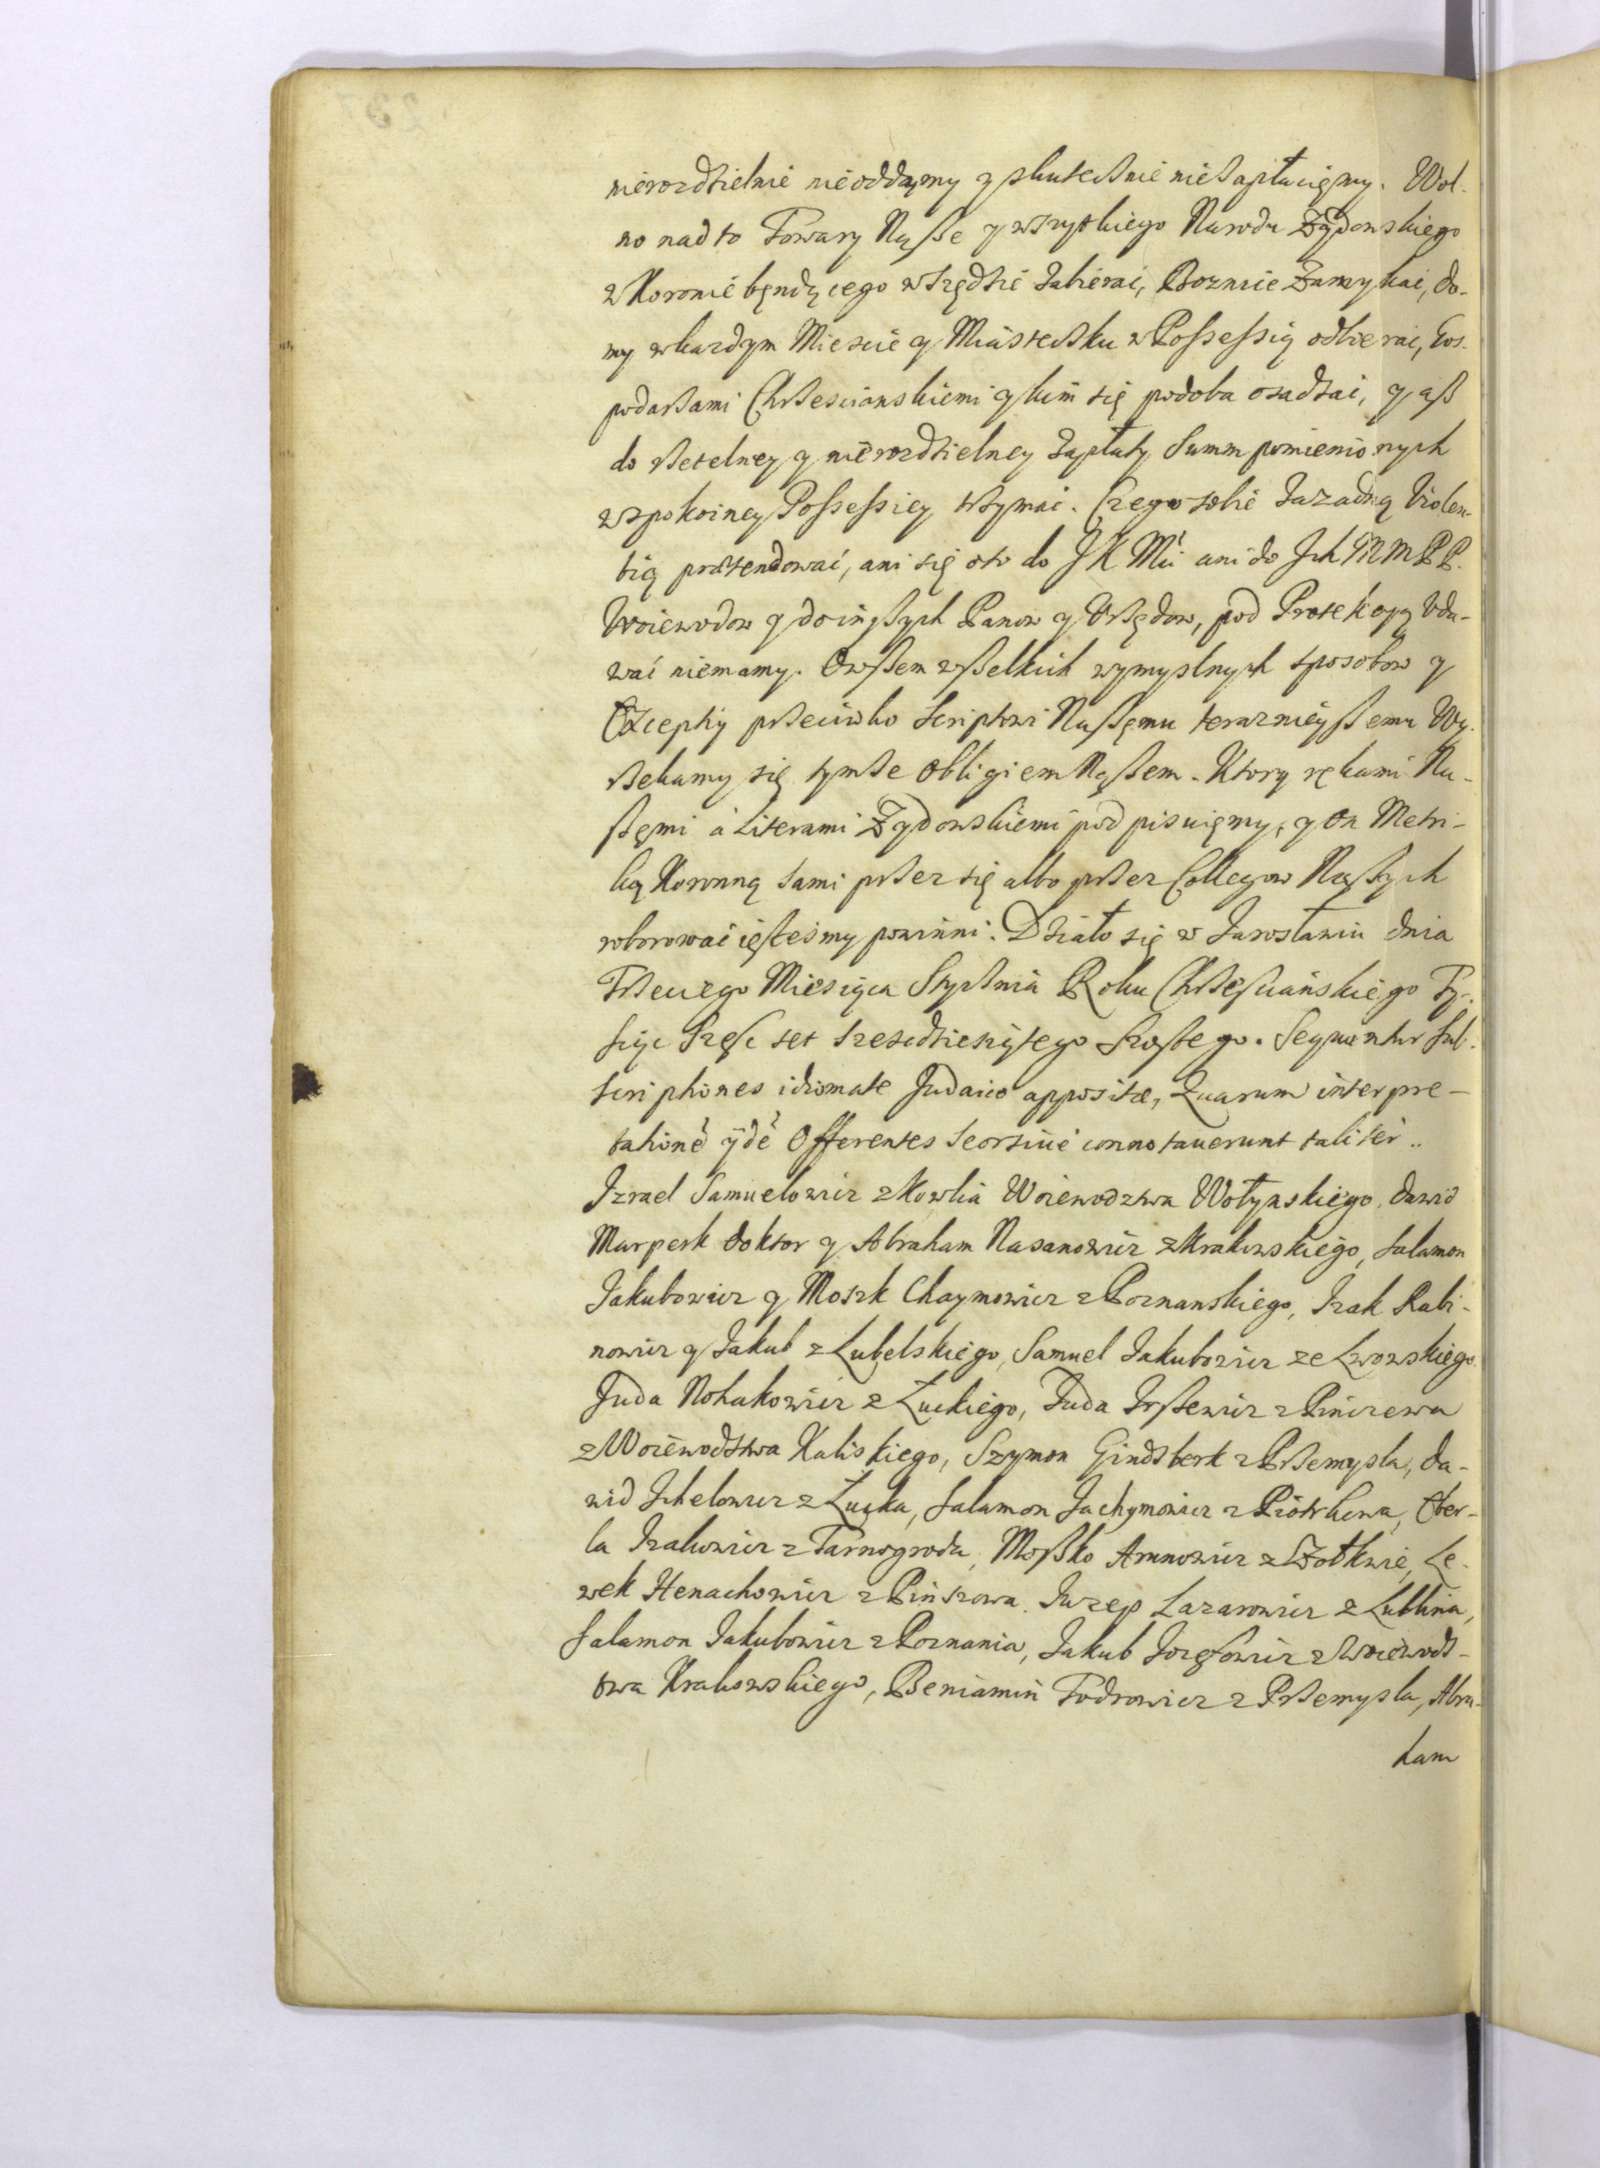 nierozdzielnie nieoddamy y skutecznie niezapłaciemy. Wol-
no nadto Towary Nasze y wszytkiego Narodu Zydowskiego
w Koronie będącego wszędzie zabierać, Boznice Zamykać, do-
my w kazdym Miescie y Miasteczku w Possessią odbierać, Gos-
podarzami Chrzescianskiemi y kim się podoba osadzać, y asz
do rzetelney y nierozdzielney zapłaty Summ pomienionych
w spokoiney Possessiey trzymać. Czego sobie za zadną Violen-
tią praetendować, ani się oto do J K Mci ani do Ich MM PP.
Woiewodow y do inszych Panow y Urzędow, pod Protekcyą Uda-
wać niemamy. Owszem wszelkich wymyslnych sposobow y
Excepty przeciwko Scriptowi Naszemu teraznieyszemu Wy-
rzekamy się tymze Obligiem Naszem. Ktory rękami Na-
szemi a Literami Zydowskiemi podpisuiemy, y On Metri-
ką Koronną sami przez się albo przez Collegow Naszych
roborować iestesmy powinni. Działo się w Jarosławiu dnia
Trzeciego Miesiąca Stycznia Roku Chrzescianskiego Ty-
siąc szesc set szescdziesiątego szostego. Sequuntur sub-
scriptiones idiomate Judaico appositae, Quarum interpre-
tationē ijdē Offerentes seorsiue connotauerunt taliter..
Izrael Samuelowicz z Kowlia Woiewodztwa Wołynskiego, Dawid
Murperk doktor y Abraham Nasanowicz z Krakowskiego, Salamon
Jakubowicz y Moszk Chaymowicz z Poznanskiego, Izak Rabi-
nowicz y Jakub z Lubelskiego, Samuel Jakubowicz ze Lwowskiego
Juda Nohakowicz z Łuckiego, Juda Irszewicz z Pinczewa
z Woiewodztwa Kaliskiego, Szymon Gindsberk z Przemysla, Da-
wid Ichelowicz z Łucka, Salamon Jachymowicz z Piotrkowa, Ober-
la Izakowicz z Tarnogrodu, Moszko Aronowicz z Żołkwie, Le-
wek Henachowicz z Pinszowa. Juzep Lazarowicz z Lublina,
Salamon Jakubowicz z Poznania, Jakub Jozefowicz z Woiewodz-
twa Krakowskiego, Beniamin Todrowicz z Przemysla, Abra-
ham